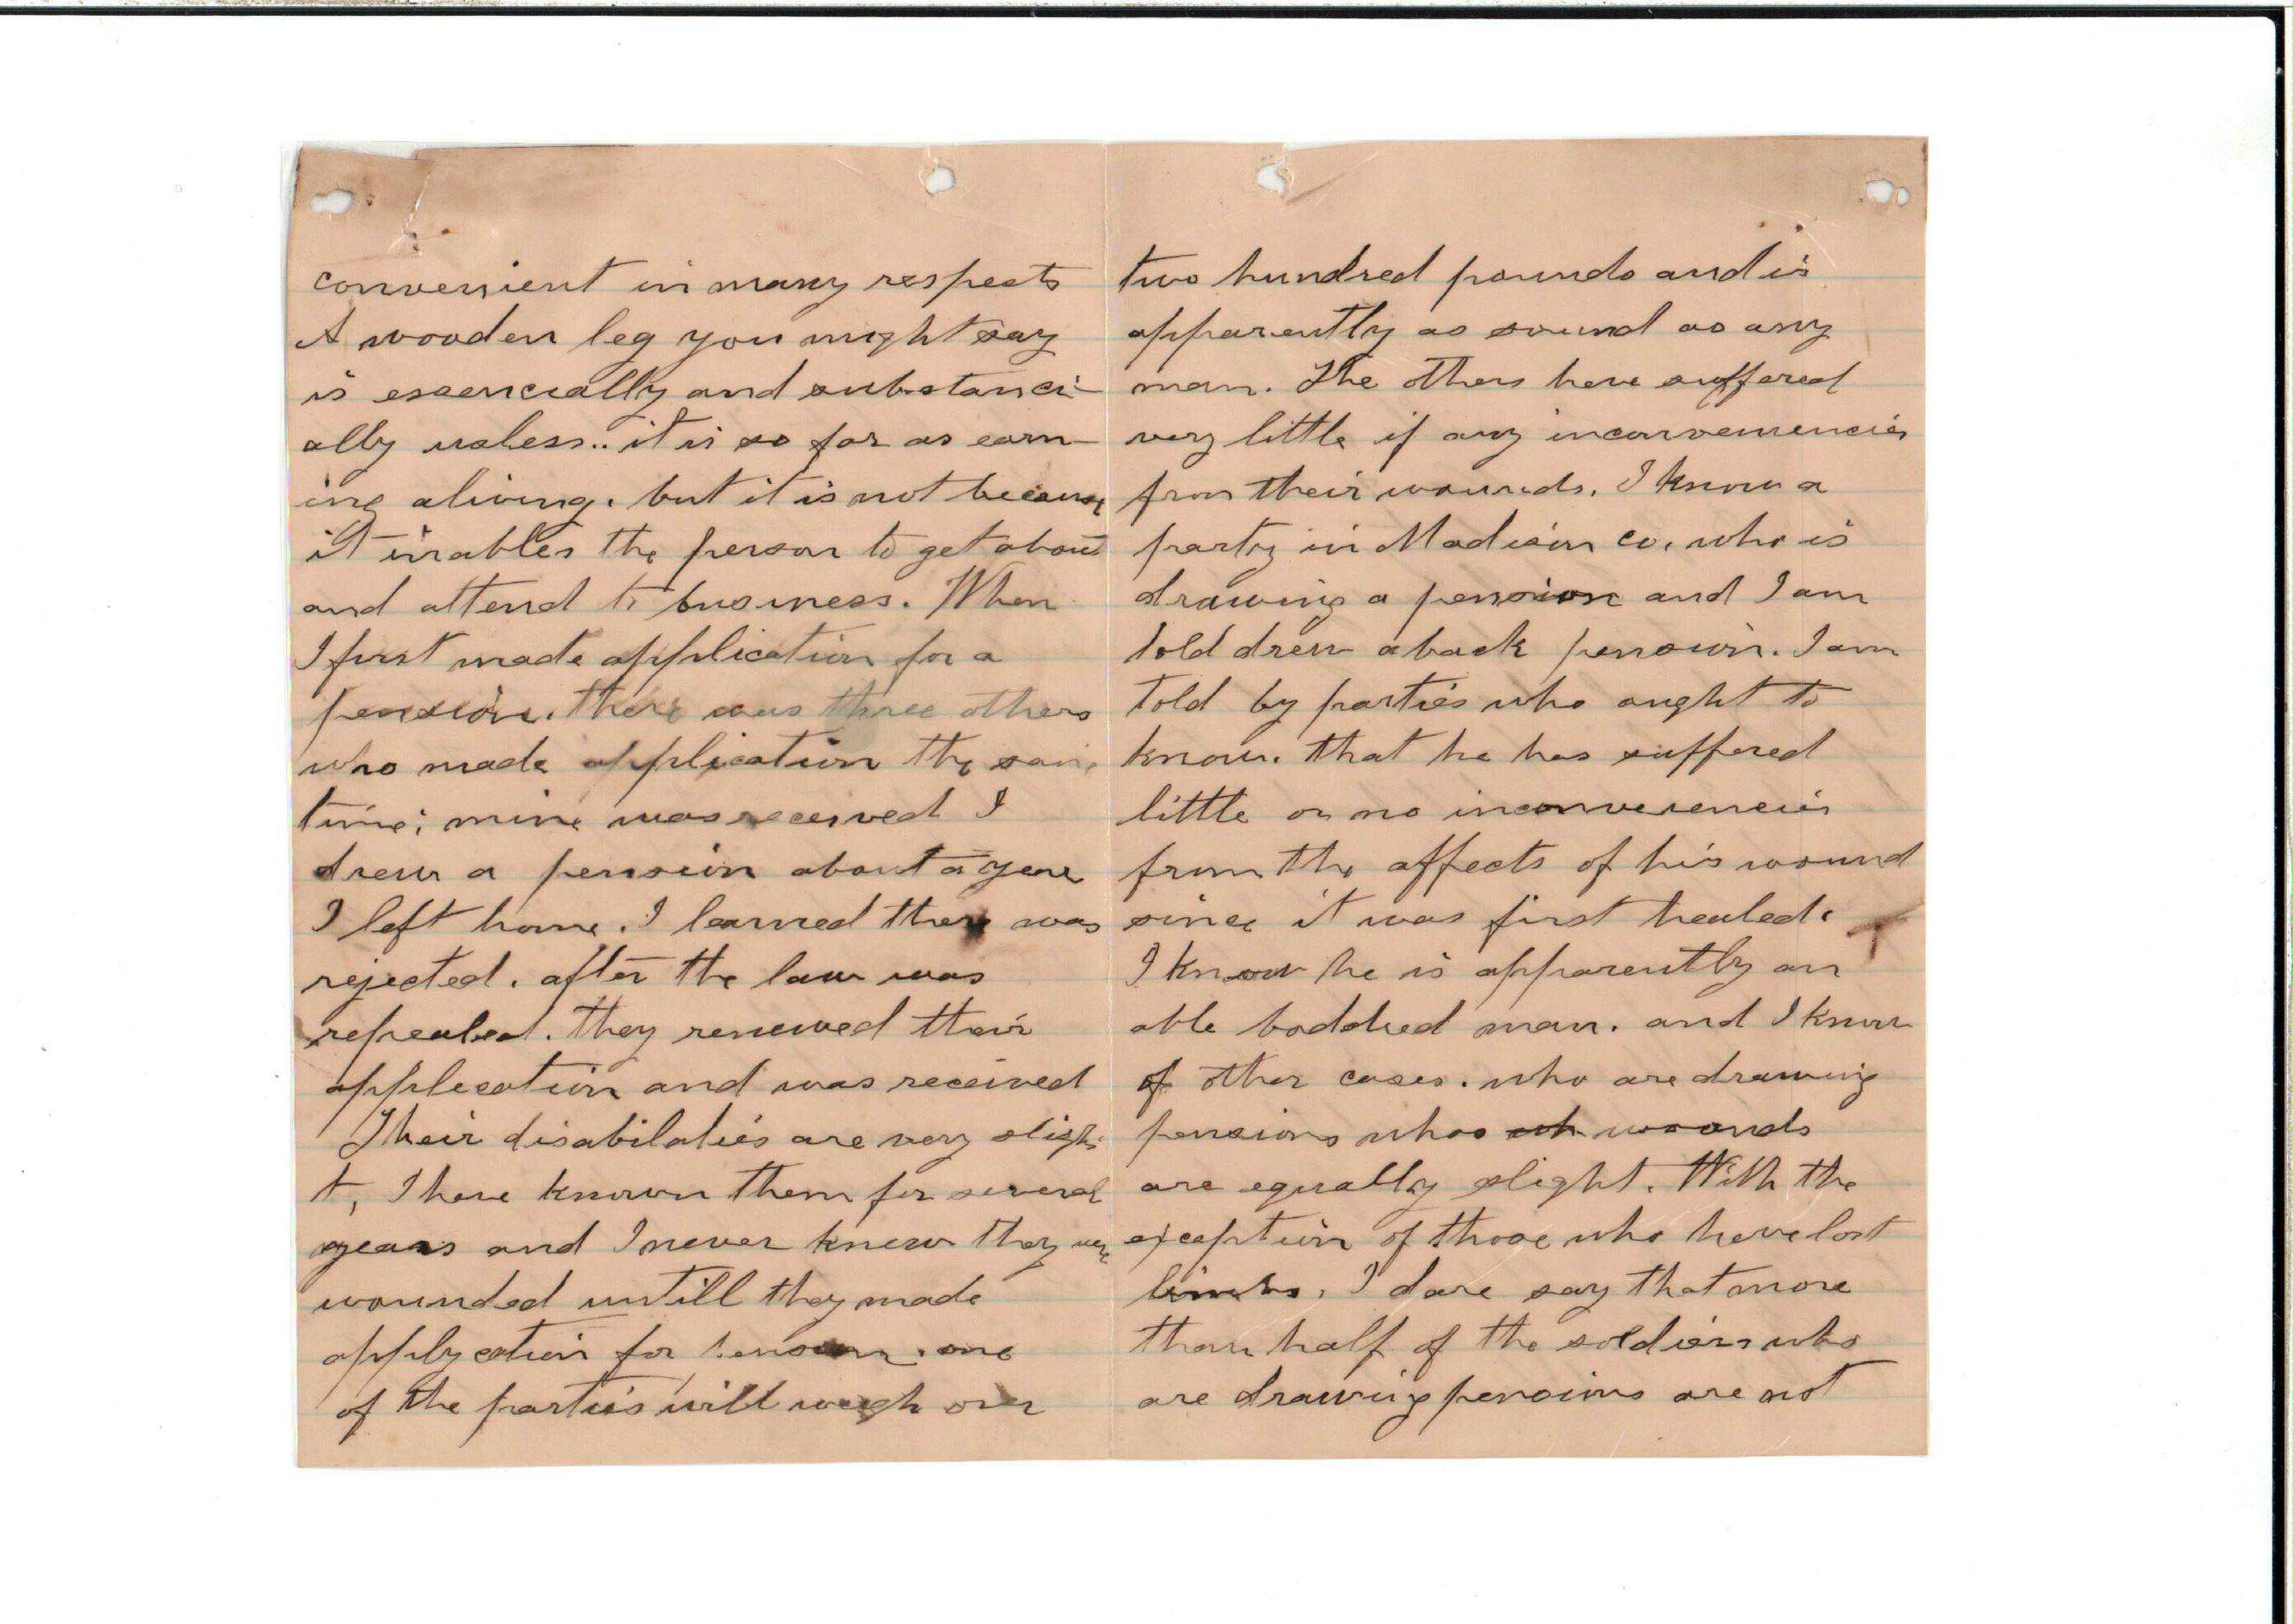 convenient in many respects
A wooden leg you might say
is essencially and substanci-
ally usless.. it is so far as earn-
ing aliving. but it is not because
it inables the person to get about
and attend to business. When
I first made application for a
pension. there was three others
who made application the same
time; mine was received I
drew a pension about a year
I left home. I learned there was
rejected. after the law was
repealed. they renewed their
application and was received
Their disabilaties are very sligh-
t, I have known them for several
years and I never knew they were
wounded untill they made
applycation for pension. one
of the parties will weigh over
two hundred pounds and is
apparently as sound as any
man. The others have suffered
very little if any inconveniencies
from their wounds. I know a
party in Madison co. who is
drawing a pension and I am
told drew a back pension. I am
told by parties who ought to
know. that he has suffered
little or no inconveniencies
from the affects of his wound
since it was first healed.
I know he is apparently an
able boddied man. and I know
of other cases. who are drawing
pensions whos wh wounds
are equally slight. With the
exception of those who have lost
limbs. I dare say that more
than half of the soldiers who
are drawing pensions are not